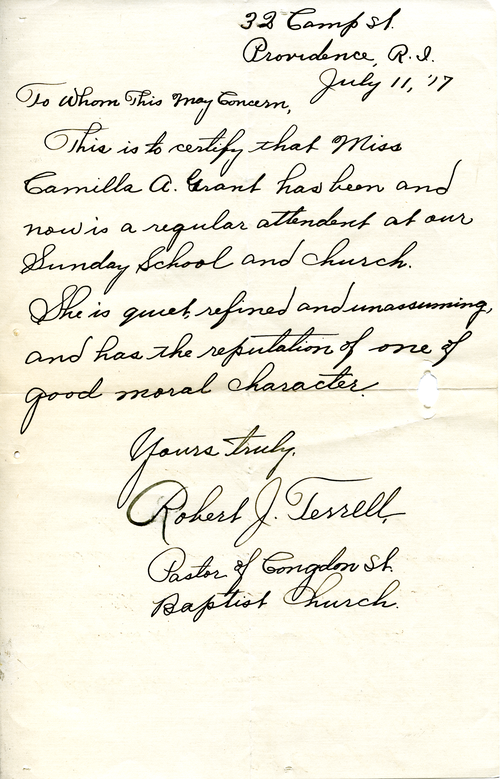 32 Camp St.
Providence, R.I.
July 11, '17
To Whom This May Concern,
This is to certify that Miss
Camilla A. Grant has been and
now is a regular attendent at our
Sunday School and church.
She is quiet refined and unassuming,
and has the reputation of one of
good moral character.
Yours truly,
Robert J. Terrell,
Pastor of Congdon St.
Baptist Church.